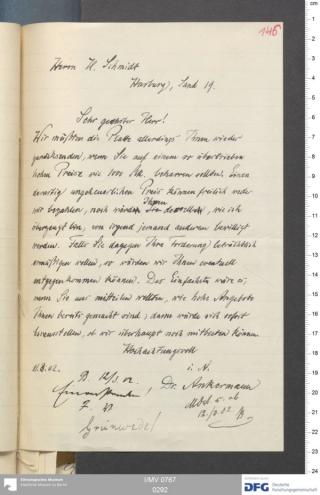 146
Herrn H. Schmidt
Harburg, Sand 19.
Sehr geehrter Herr!
Wir müßten die Platte allerdings Ihnen wieder
zurücksenden, wenn Sie auf einem so übertrieben
hohen Preise wie 1000 Mk. beharren sollten. Einen
derartig ungeheuerlichen Preis können freilich weder
wir bezahlen, noch würden Ihnen, wie ich
überzeugt bin, von irgend jemand anderem bewilligt
werden. Falls Sie dagegen Ihre Forderung beträchtlich
ermäßigen wollen, so würden wir Ihnen eventuell
entgegenkommen können. Das Einfachste wäre es,
wenn Sie uns mitteilen wollten, wie hohe Angebote
Ihnen bereits gemacht sind; dann würde sich sofort
herausstellen, ob wir überhaupt noch mitbieten können.
Hochachtungsvoll
11.3.02.
i. A.
B. 12/3.02.
Dr. Ankermann
Grünwedel
I/MV 0767
0292
Ethnologisches Museum
Staatliche Museen zu Berlin
DFG
Deutsche
Forschungsgemeinschaft
cm